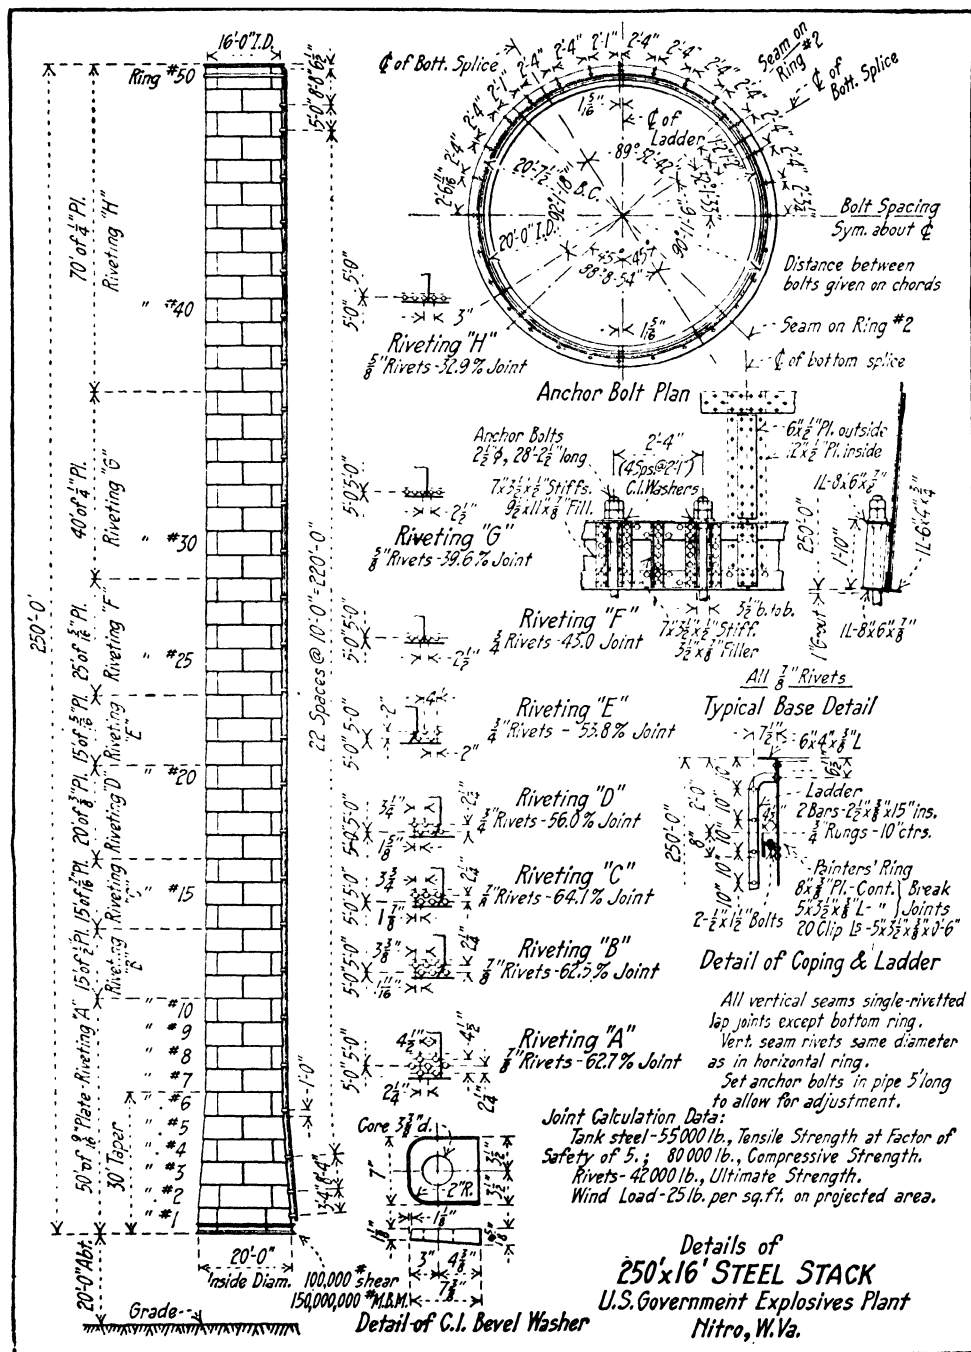 16'-0" I.D.
Ring #50
" #40
" #30
" #25
" #20
" #15
" #10
" #9
" #8
" #7
" #6
" #5
" #4
" #3
" #2
" #1
250'-0"
70' of 1/4" Pl.
Riveting "H"
40' of 1/4" Pl.
Riveting "G"
25' of 5/16" Pl.
Riveting "F"
15' of 5/16" Pl.
Riveting "E"
20' of 3/8" Pl.
Riveting "D"
15' of 7/16" Pl.
Riveting
15' of 1/2" Pl.
Riveting
50' of 9/16" Plate Riveting "A"
30' Taper
20'-0" Abt.
Grade
20'-0"
Inside Diam.
100,000 # shear
150,000,000 "# M.B.M.
22 Spaces @ 10'-0" = 220'-0"
1'-0"
5'-0" 5'-0"
3"
Riveting "H"
5/8" Rivets - 32.9% Joint
5'-0" 5'-0"
2 1/2"
Riveting "G"
5/8" Rivets - 39.6% Joint
5'-0" 5'-0"
2 1/2"
Riveting "F"
3/4" Rivets - 45.0 Joint
5'-0" 5'-0"
4"
2"
2"
Riveting "E"
3/4" Rivets - 53.8% Joint
5'-0" 5'-0"
3 1/4"
2 1/4"
1 5/8"
Riveting "D"
3/4" Rivets - 56.0% Joint
5'-0" 5'-0"
3 3/4"
1 7/8"
Riveting "C"
7/8" Rivets - 64.1% Joint
5'-0" 5'-0"
3 3/8"
1 11/16"
Riveting "B"
7/8" Rivets - 62.5% Joint
5'-0" 5'-0"
4 1/2"
4 1/2"
2 1/4"
2 1/4"
Riveting "A"
7/8" Rivets - 62.7% Joint
℄ of Bott. Splice
2'-1" 2'-4" 2'-4" 2'-1" 2'-4" 2'-4" 2'-1" 2'-4"
Seam on
Ring #2
℄ of
Bott. Splice
1 5/16"
℄ of
Ladder
89°-52'-42"
20'-7 1/2" B.C.
92°-1'-18"
20'-0" I.D.
45° 45°
98°-8'-54"
1 5/16"
Bolt Spacing
Sym. about ℄
Distance between
bolts given on chords
Seam on Ring #2
℄ of bottom splice
Anchor Bolt Plan
Anchor Bolts
2 1/2" φ, 28'-2 1/2" long
7"x3 1/2"x1/2" Stiffs.
9 1/2"x11"x7/8" Fill.
2'-4"
C.I. Washers
6"x1/2" Pl. outside
12"x1/2" Pl. inside
1L-8"x6"x7/8"
250'-0"
1'-10"
1L-6"x4"x3/4"
1L-8"x6"x7/8"
1" Grout
3 1/2" b. to b.
7"x3 1/2"x1/2" Stiff.
3 1/2"x7/8" Filler
All 7/8" Rivets
Typical Base Detail
7 1/2"
6"x4"x3/8" L
6 1/2"
Ladder
2 Bars-2 1/2"x3/8"x15" ins.
3/4" Rungs - 10" ctrs.
250'-0"
2'-0"
8"
10" 10" 10" 10"
Painters' Ring
8"x3/8" Pl.-Cont. } Break
5"x3 1/2"x3/8" L- " } Joints
20 Clip Ls-5"x3 1/2"x3/8"x0'-6"
2-1/2"x1 1/2" Bolts
Detail of Coping & Ladder
All vertical seams single-rivetted
lap joints except bottom ring.
Vert. seam rivets same diameter
as in horizontal ring.
Set anchor bolts in pipe 5' long
to allow for adjustment.
Joint Calculation Data:
Tank steel-55000 lb., Tensile Strength at Factor of
Safety of 5.; 80 000 lb., Compressive Strength.
Rivets-42000 lb., Ultimate Strength.
Wind Load-25 lb. per sq. ft. on projected area.
Core 3 3/8" d.
7"
3 1/2"
3 1/2"
2" R.
1 1/8"
3" 4 3/8"
7 3/8"
Detail of C.I. Bevel Washer
Details of
250'x16' STEEL STACK
U.S. Government Explosives Plant
Nitro, W.Va.